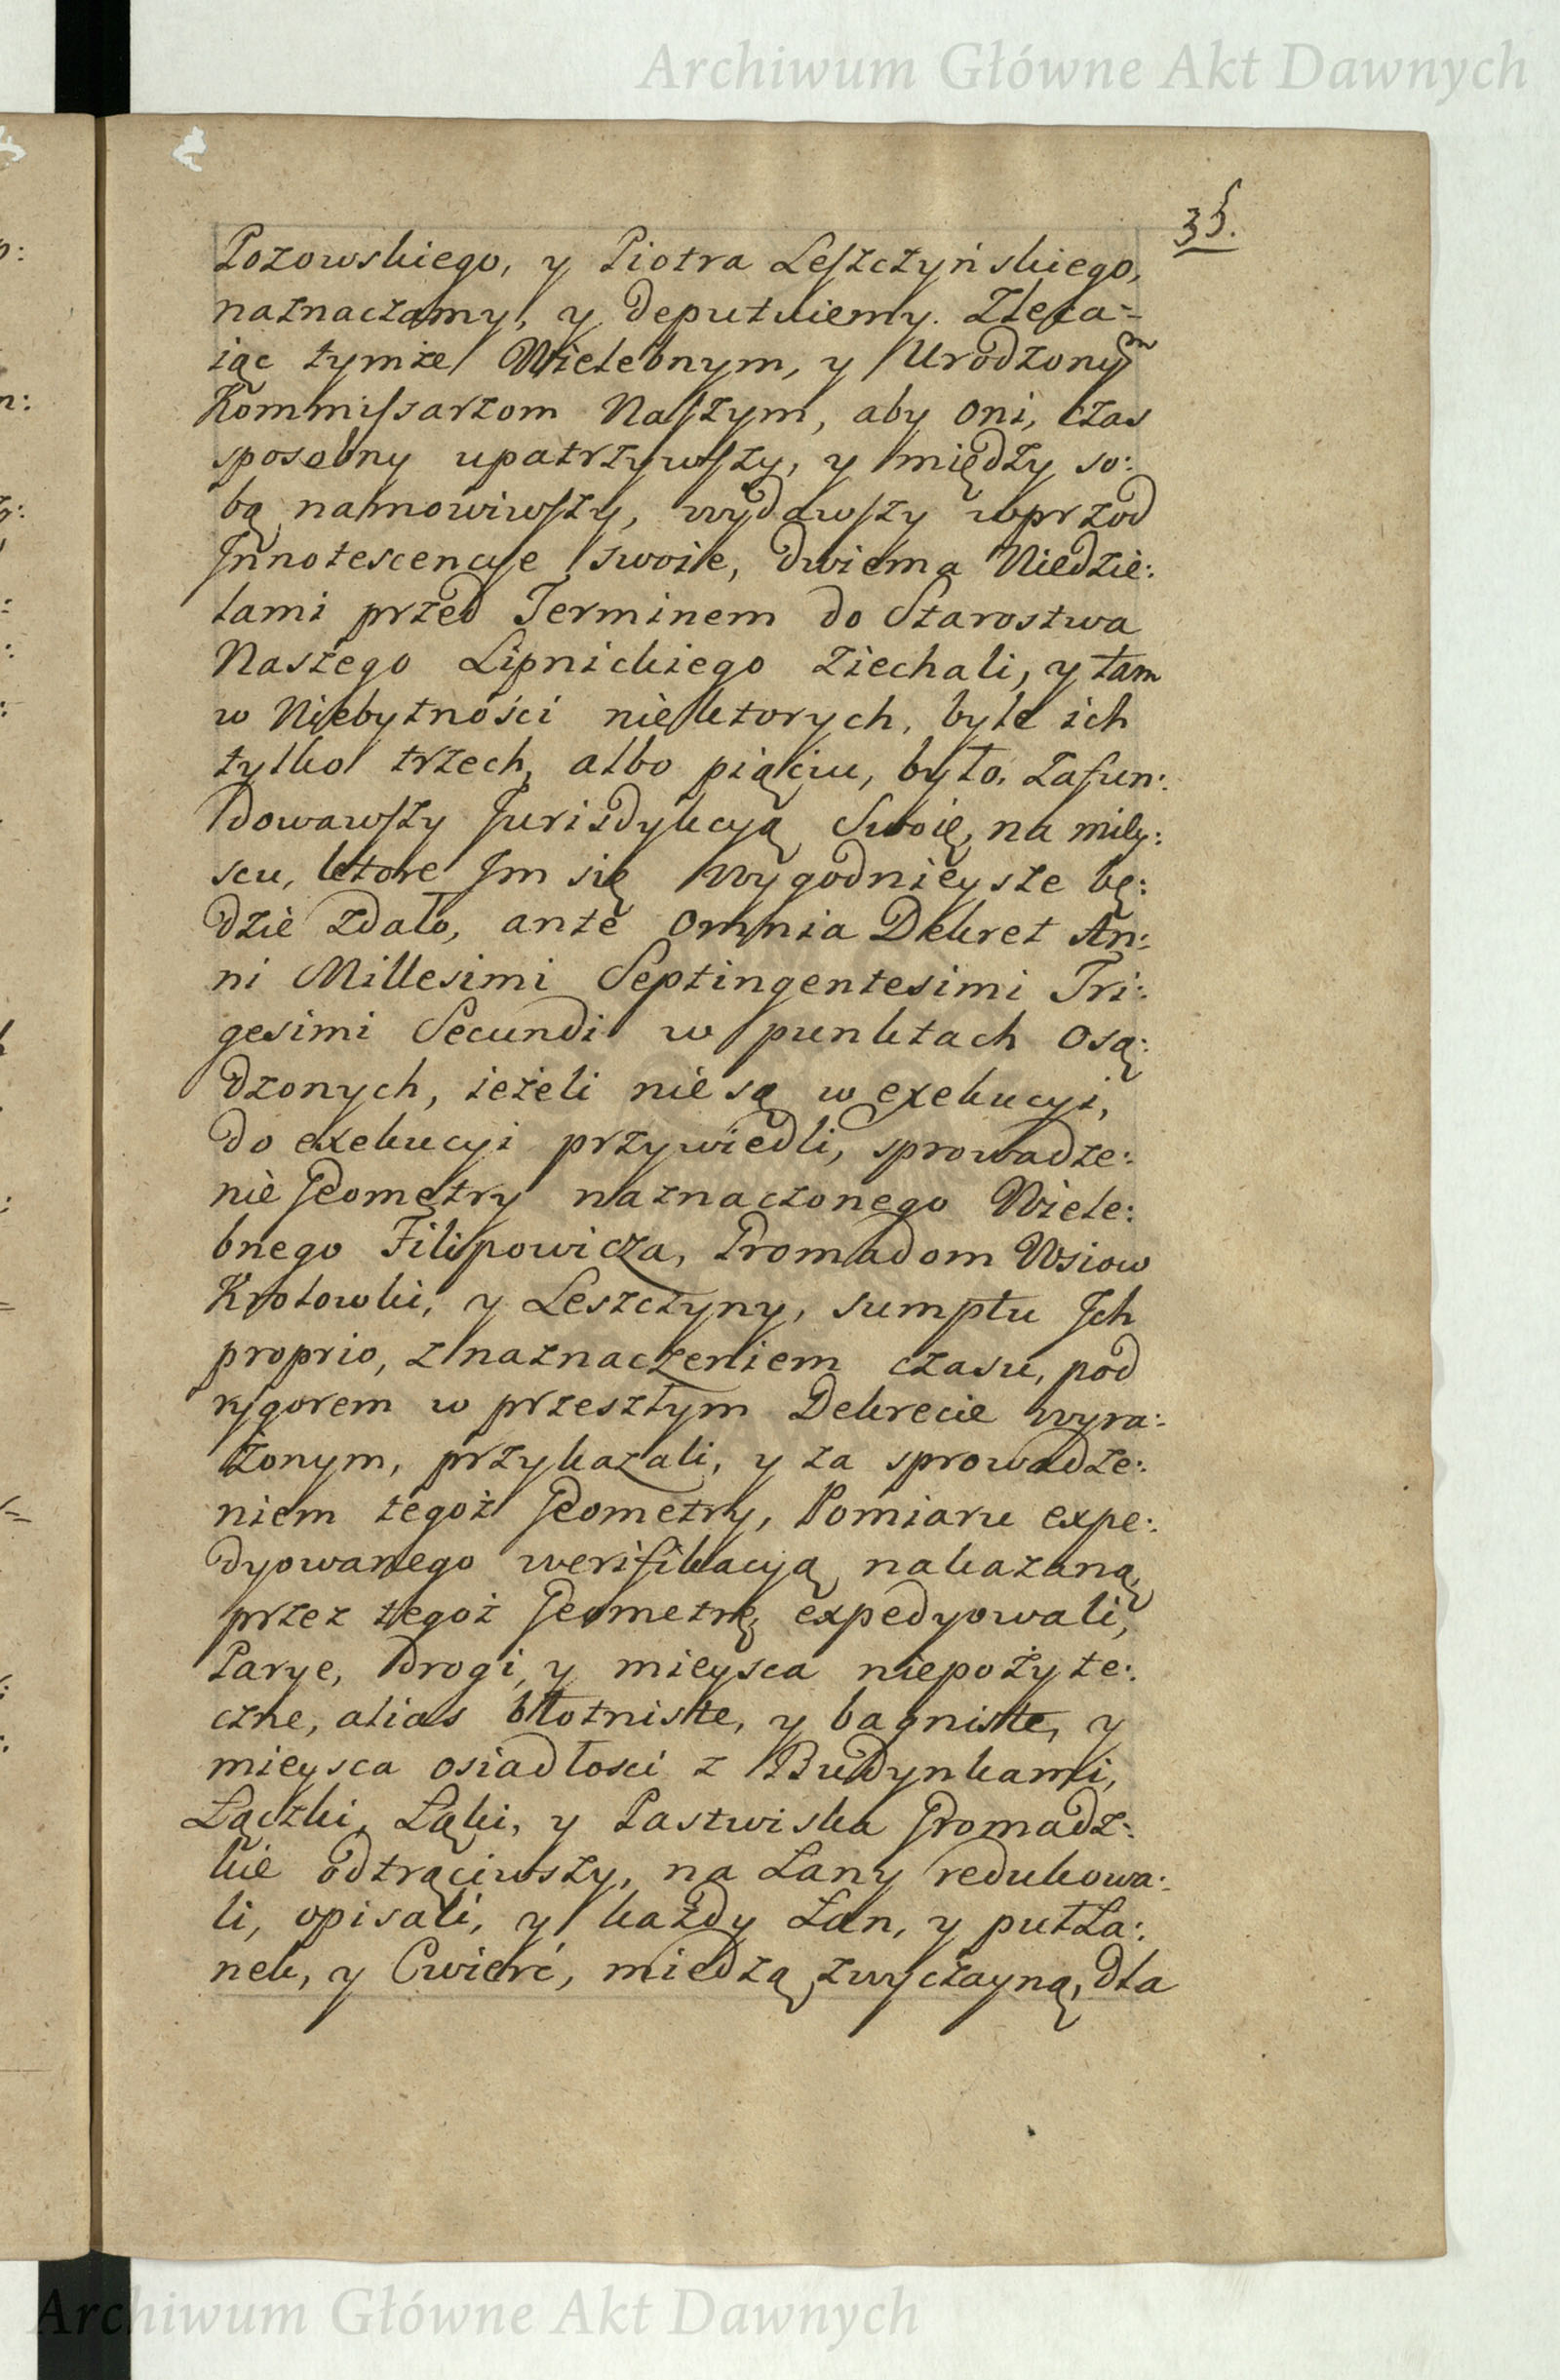 Archiwum Główne Akt Dawnych
35.
Pozowskiego, y Piotra Leszczyńskiego,
naznaczamy, y deputuiemy. Zleca=
iąc tymże Wielebnym, y Urodzonym
Kommissarzom Naszym, aby oni, czas
sposobny upatrzywszy, y między so:
bą namowiwszy, wydawszy wprzod
Innotescencye swoie, dwiema Niedzie:
lami przed Terminem do Starostwa
Naszego Lipnickiego ziechali, y tam
w Niebytności niektorych, byle ich
tylko trzech, albo piąciu, było, zafun:
dowawszy Jurizdykcyą Swoię, na miey:
scu, ktore Jm się wygodnieysze bę:
dzie zdało, ante omnia Dekret An:
ni Millesimi Septingentesimi Tri:
gesimi Secundi w punktach osą:
dzonych, ieżeli nie są w exekucyi,
do exekucyi przywiedli, sprowadze:
nie Geometry naznaczonego Wiele:
bnego Filipowicza, Gromadom Wsiow
Krolowki, y Leszczyny, sumptu Jch
proprio, z naznaczeniem czasu, pod
rygorem w przeszłym Dekrecie wyra:
żonym, przykazali, y za sprowadze:
niem tegoż Geometry, Pomiaru expe:
dyowanego werifikacyą nakazaną,
przez tegoż Geometrę, expedyowali,
Parye, Drogi, y mieysca niepożyte:
czne, alias błotniste, y bagniste, y
mieysca osiadłosci z Budynkami,
Łączki, Łąki, y Pastwiska Gromadz:
kie odtrąciwszy, na Łany redukowa:
li, opisali, y każdy Łan, y pułŁa:
nek, y Cwierć, miedzą zwyczayną, dla
Archiwum Główne Akt Dawnych